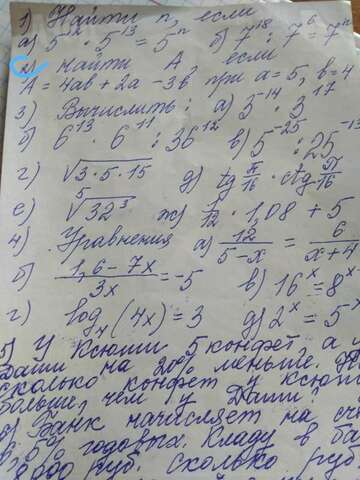 1) Найти n, если
а) 5⁻¹² · 5¹³ = 5ⁿ б) 7¹⁸ : 7⁶ = 7ⁿ
2) Найти А, если
А = 4ab + 2a - 3b при a = 5, b = 4
3) Вычислить: а) 5⁻¹⁴ · 3¹⁷
б) 6¹³ · 6¹¹ : 36¹² в) 5⁻²⁵ : 25⁻¹³
г) √3·5·15 д) tg π/16 · ctg π/16
е) ⁵√32³ ж) 1/12 · 1,08 + 5
4) Уравнения а) 12/(5-x) = 6/(x+4)
б) (1,6-7x)/3x = -5 в) 16ˣ = 8ˣ
г) log₄(4x) = 3 д) 2ˣ = 5ˣ
5) У Ксюши 5 конфет, а у
Даши на 20% меньше.
сколько конфет у Ксюши
больше, чем у Даши?
Банк начисляет на
годовых. Кладу в
руб. Сколько руб